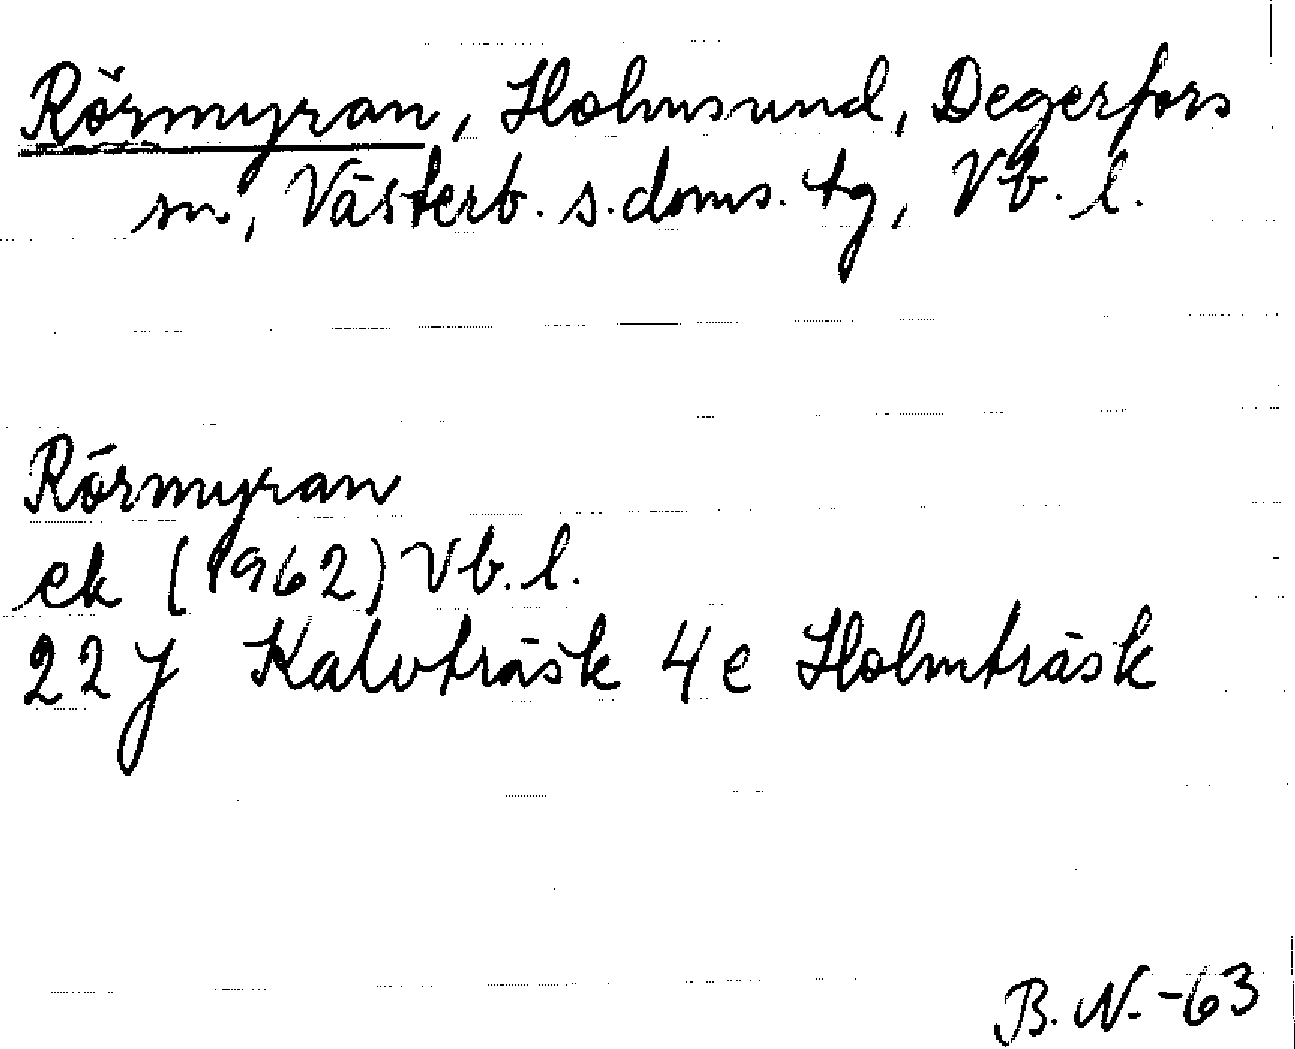 Rörmyran, Holmsund, Degerfors
sn, Västerb. s. doms. tg, Vb. l.
Rörmyran
ek (1962) Vb. l.
22 J Kalvträsk 4 e Holmträsk
B. N. -63